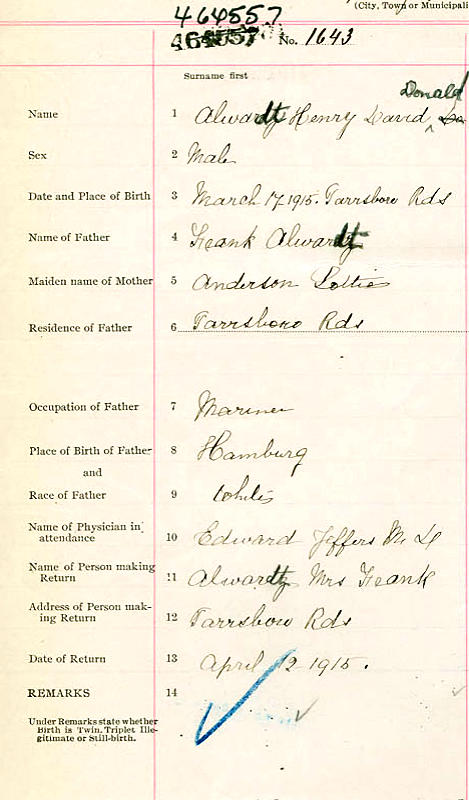 (City, Town or Municipali
464557
464557 No. 1643
Surname first
Donald
Name 1 Alwardt Henry David
Sex 2 Male
Date and Place of Birth 3 March 17, 1915. Tarrsboro Rds
Name of Father 4 Frank Alwardt
Maiden name of Mother 5 Anderson Lottie
Residence of Father 6 Tarrsboro Rds
Occupation of Father 7 Mariner
Place of Birth of Father 8 Hamburg
and
Race of Father 9 White
Name of Physician in attendance 10 Edward Jeffers M D
Name of Person making Return 11 Alwardt Mrs Frank
Address of Person mak-
ing Return 12 Tarrsboro Rds
Date of Return 13 April 12 1915.
REMARKS 14
Under Remarks state whether
Birth is Twin, Triplet Ille-
gitimate or Still-birth.